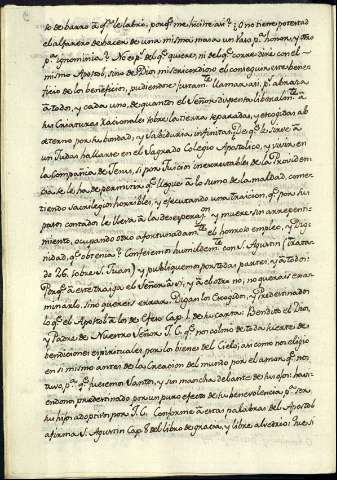 so de barro a qn. le labró, porqe. me hiciste asi? O no tiene potestad
el alfarero de hacer de una misma masa un vaso pa. honor, y otro
pa. ignominia? No es pr. del qe. quiere, ni del qe. corre dice con el
mismo Apostol, sino de Dios misericordioso el conseguir este bene-
ficio de los beneficios, pudiendose justam.te llamar asi, pr. abrazar
a todos, y cada uno de quantos el Señor dispensa liberalm.te a
sus Criaturas Racionales sobre la tierra separadas, y escogidas ab
eterno por su bondad, y Sabiduria infinita; pues de qe. le sirve a
un Judas hallarse en el Sagrado Colegio Apostolico, y vivir en
la Compañia de Jesus, si por Juicios inexcrutables de la Providen-
cia se le ha de permitir qe. llegue a lo sumo de la maldad, come-
tiendo sacrilegios horribles, y executando una traicion, qe. por sus
pasos contados le lleva a la desesperacion, y muere sin arrepenti-
miento, ocupando otro afortunadam.te el honroso empleo, y Dig-
nidad, qe. obtenia? Confesemos humildem.te con S. Agustin (tratado
26. sobre S. Juan) y publiquemos por todas partes, y a todos:
Porqe. a este traiga el Señor a si, y a el otro no; no querais exa-
minarlo, sino quereis errar. Digan los Escogidos, y Predestinados
lo qe. el Apostol a los de Efeso Cap. 1. de su carta: Bendito el Dios,
y Padre de Nuestro Señor J. C. qe. nos colmó de toda suerte de
bendiciones espirituales por los bienes del Cielo; asi como nos eligio
en si mismo antes de la Creacion del mundo por el amor qe. nos
tuvo, pa. qe. fuesemos Santos, y sin mancha delante de sus ojos: havi-
endonos predestinado por un puro efecto de su benevolencia pa. ser
sus hijos adoptivos por J. C. Conforme a estas palabras del Apostol
afirma S. Agustin Cap. 8 del libro de gracia, y libre alvedrio: Que si